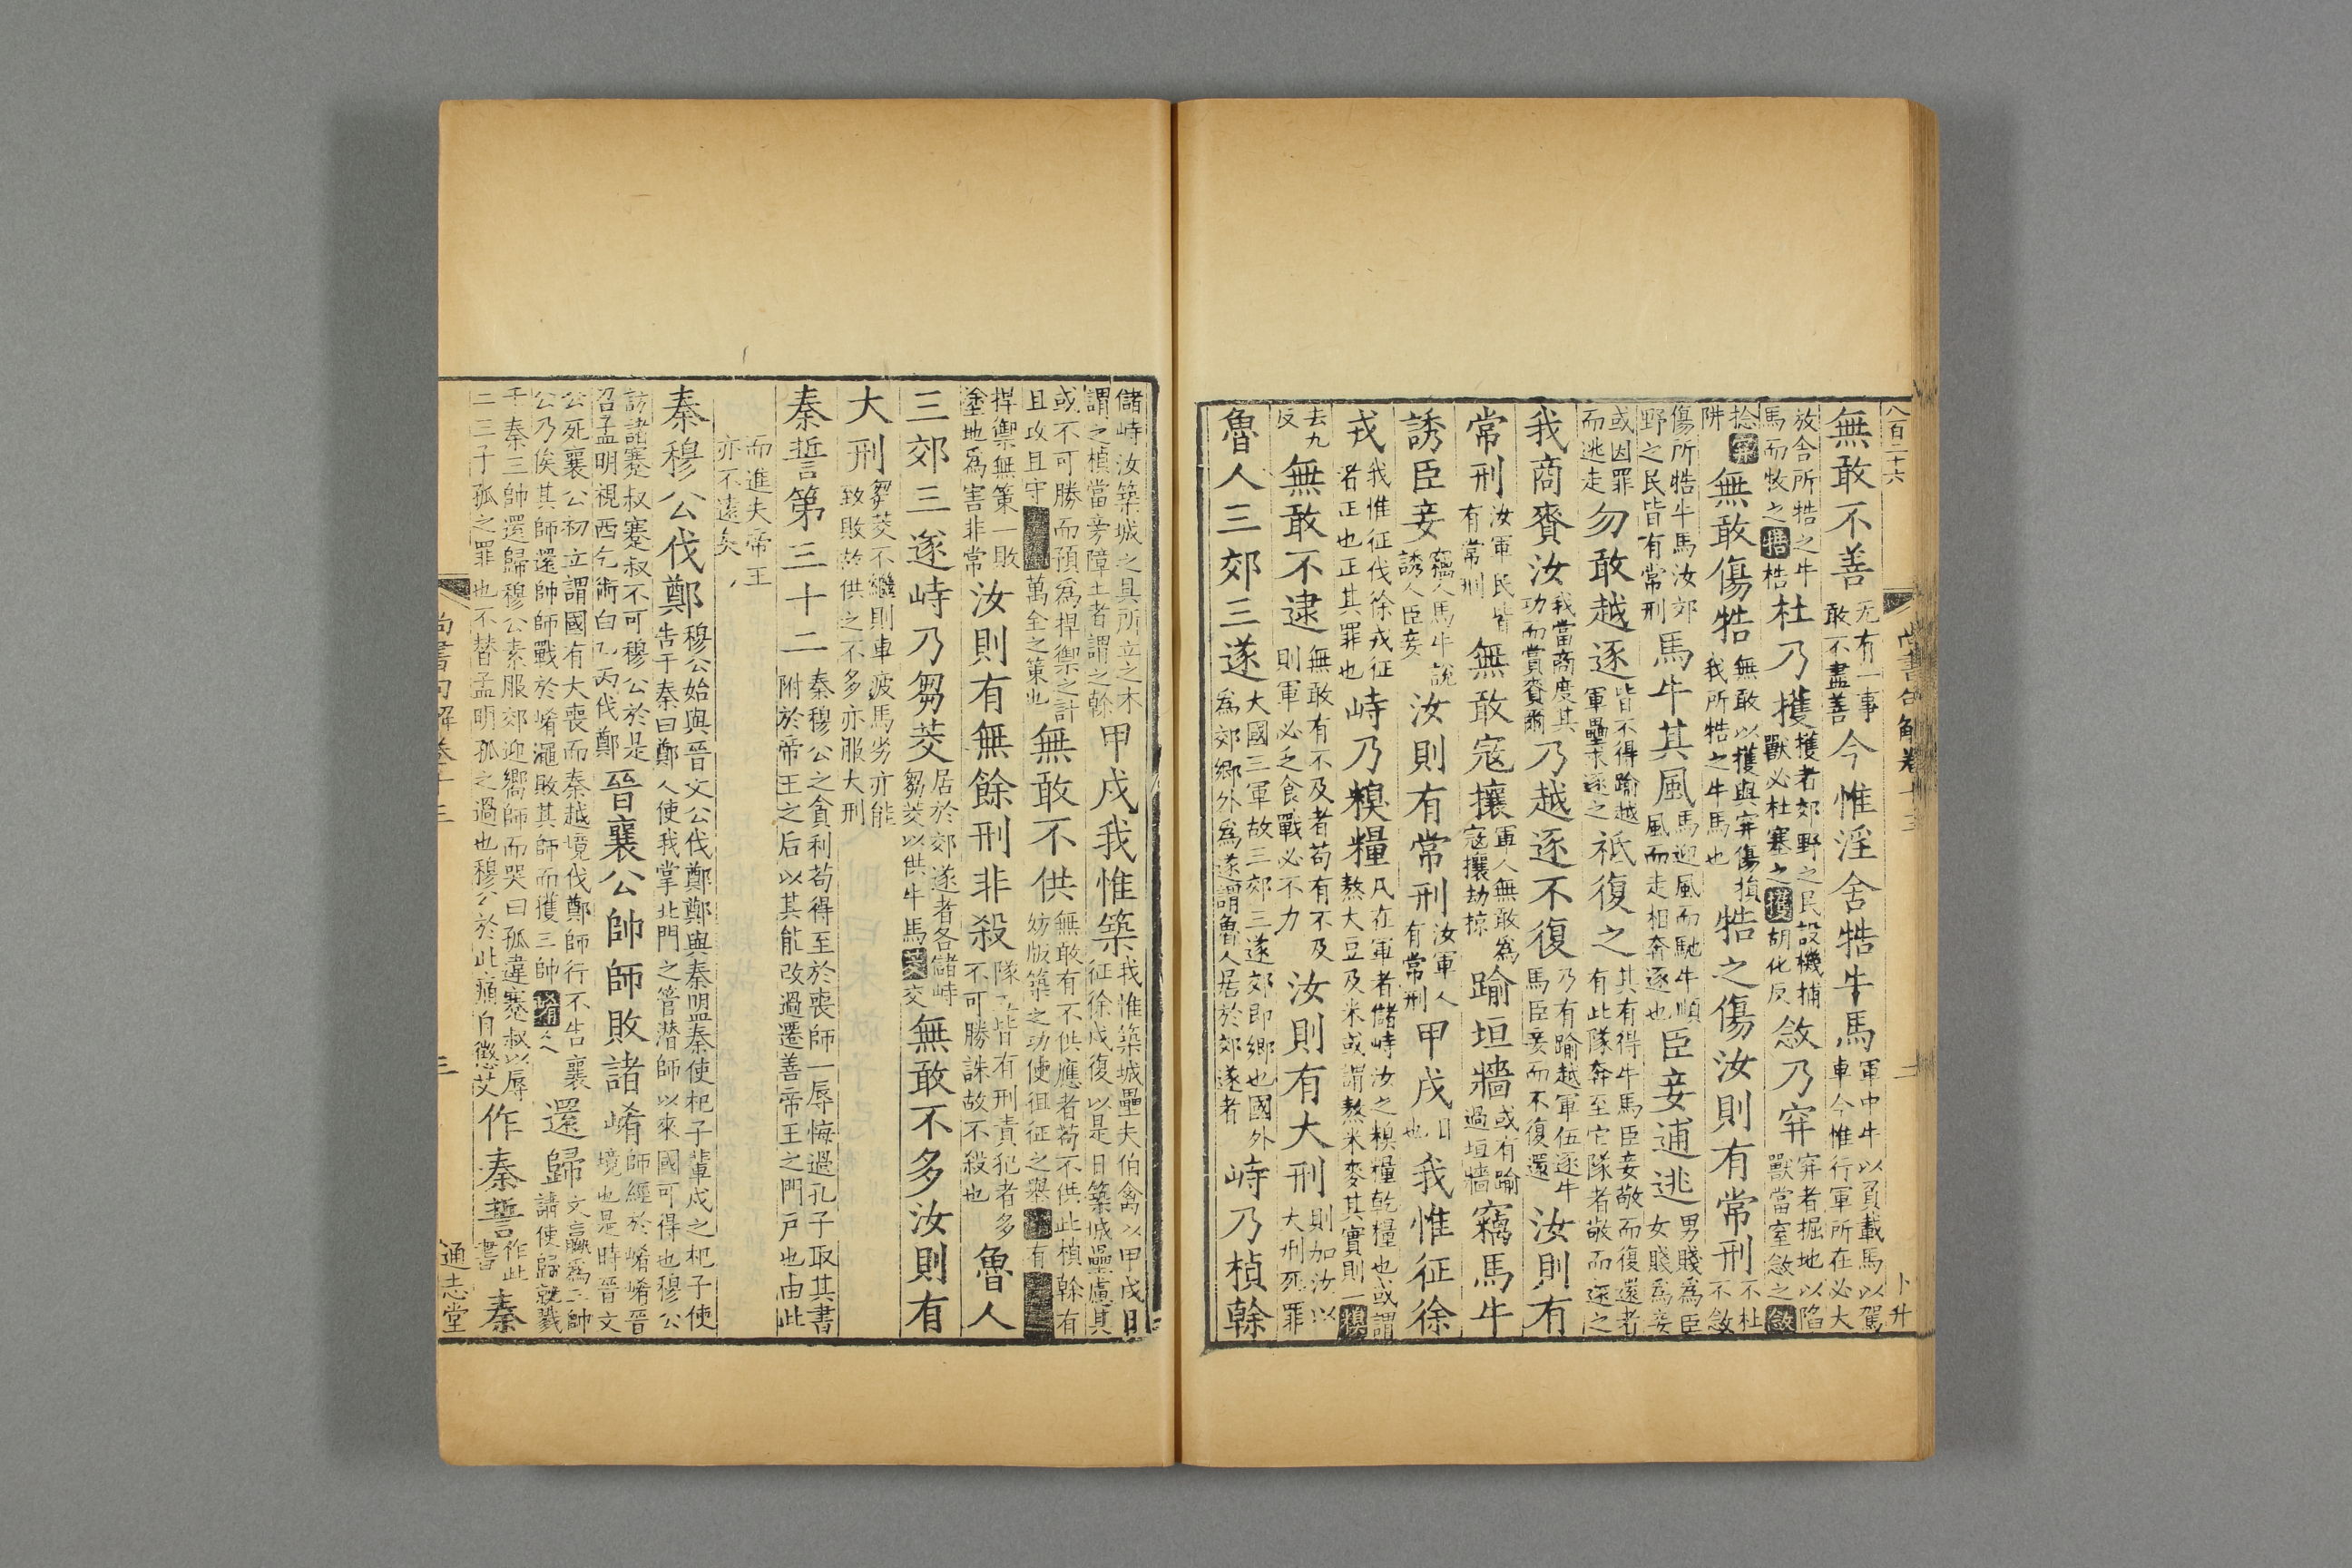 八百二十六 尚書句解卷十三 二 卜升
無敢不善无有一事敢不盡善今惟淫舍牿牛馬軍中牛以負載馬以駕車今惟行軍所在必大
放舍所牿之牛馬而牧之牿梏杜乃擭擭者郊野之民設機捕獸必杜塞之擭胡化反敜乃穽穽者掘地以陷獸當窒敜之敜
捻穽阱無敢傷牿無敢以擭與穽傷損我所牿之牛馬也牿之傷汝則有常刑不杜不敜
傷所牿牛馬汝郊野之民皆有常刑馬牛其風馬迎風而馳牛順風而走相奔逐也臣妾逋逃男賤為臣女賤為妾
或因罪而逃走勿敢越逐皆不得踰越軍壘求逐之祗復之其有得牛馬臣妾敬而復還者有此隊奔至它隊者敬而還之
我商賚汝我當商度其功而賞賚爾乃越逐不復乃有踰越軍伍逐牛馬臣妾而不復還汝則有
常刑汝軍民皆有常刑無敢寇攘軍人無敢爲寇攘劫掠踰垣牆或有踰過垣牆竊馬牛
誘臣妾竊人馬牛說誘人臣妾汝則有常刑汝軍人有常刑甲戌日也我惟征徐
戎我惟征伐徐戎征者正也正其罪也峙乃糗糧凡在軍者儲峙汝之糗糧乾糧也或謂熬大豆及米或謂熬米麥其實則一糗
去九反無敢不逮無敢有不及者苟有不及則軍必乏食戰必不力汝則有大刑則加汝以大刑死罪
魯人三郊三遂大國三軍故三郊三遂郊即鄉也國外爲郊鄉外爲遂謂魯人居於郊遂者峙乃楨榦
儲峙汝築城之具所立之木謂之楨當旁障土者謂之榦甲戌我惟築我惟築城壘夫伯禽以甲戌日征徐戎復以是日築城壘慮其
或不可勝而預爲捍禦之計且攻且守萬全之策也無敢不供無敢有不供應者苟不供此楨榦有妨版築之功使徂征之舉有
捍禦無策一敗塗地爲害非常汝則有無餘刑非殺隊伍皆有刑責犯者多不可勝誅故不殺也魯人
三郊三遂峙乃芻茭居於郊遂者各儲峙芻茭以供牛馬茭交無敢不多汝則有
大刑芻茭不繼則車疲馬劣亦能致敗故供之不多亦服大刑
秦誓第三十二秦穆公之貪利苟得至於喪師一辱悔過孔子取其書附於帝王之后以其能改過遷善帝王之門戶也由此
而進夫帝王亦不遠矣
秦穆公伐鄭穆公始與晉文公伐鄭鄭與秦盟秦使杞子輩戍之杞子使告于秦曰鄭人使我掌北門之管潛師以來國可得也穆公
訪諸蹇叔蹇叔不可穆公於是召孟明視西乞術白乙丙伐鄭晉襄公帥師敗諸崤師經於崤崤晉境也是時晉文
公死襄公初立謂國有大喪而秦越境伐鄭師行不告襄公乃俟其師還帥師戰於崤澠敗其師而獲三帥崤爻還歸文嬴爲三帥請使歸就戮
于秦三帥還歸穆公素服郊迎嚮師而哭曰孤違蹇叔以辱二三子孤之罪也不替孟明孤之過也穆公於此痛自懲艾作秦誓作此書秦
尚書句解卷十三 三 通志堂